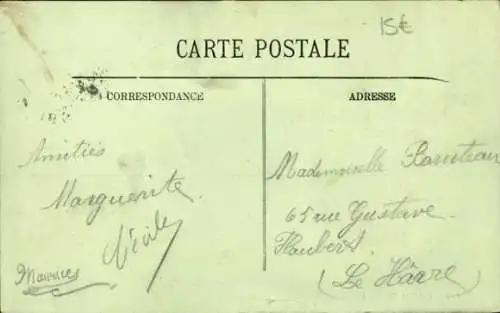 15€
CARTE POSTALE
CORRESPONDANCE
ADRESSE
Amitiés
Marguerite
Cécile
Maurice
Mademoiselle
65 rue Gustave
Flaubert
(Le Hâvre)